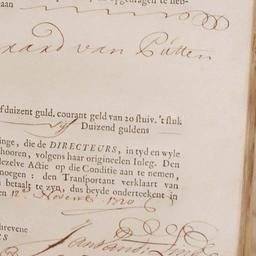 opgedragen te heb-
aan
raad van Putten
f duizent guld. courant geld van 20 stuiv. 't stuk
vijf Duizend guldens
inge, die de DIRECTEURS, in tyd en wyle
hooren, volgens haar origineelen Inleg. Den
dezelve Actie op die Conditie aan te nemen,
noegen: den Transportant verklaart van
betaalt te zyn, dus beyde onderteekent in
en 12e Novemb 1720
chrevene
RS